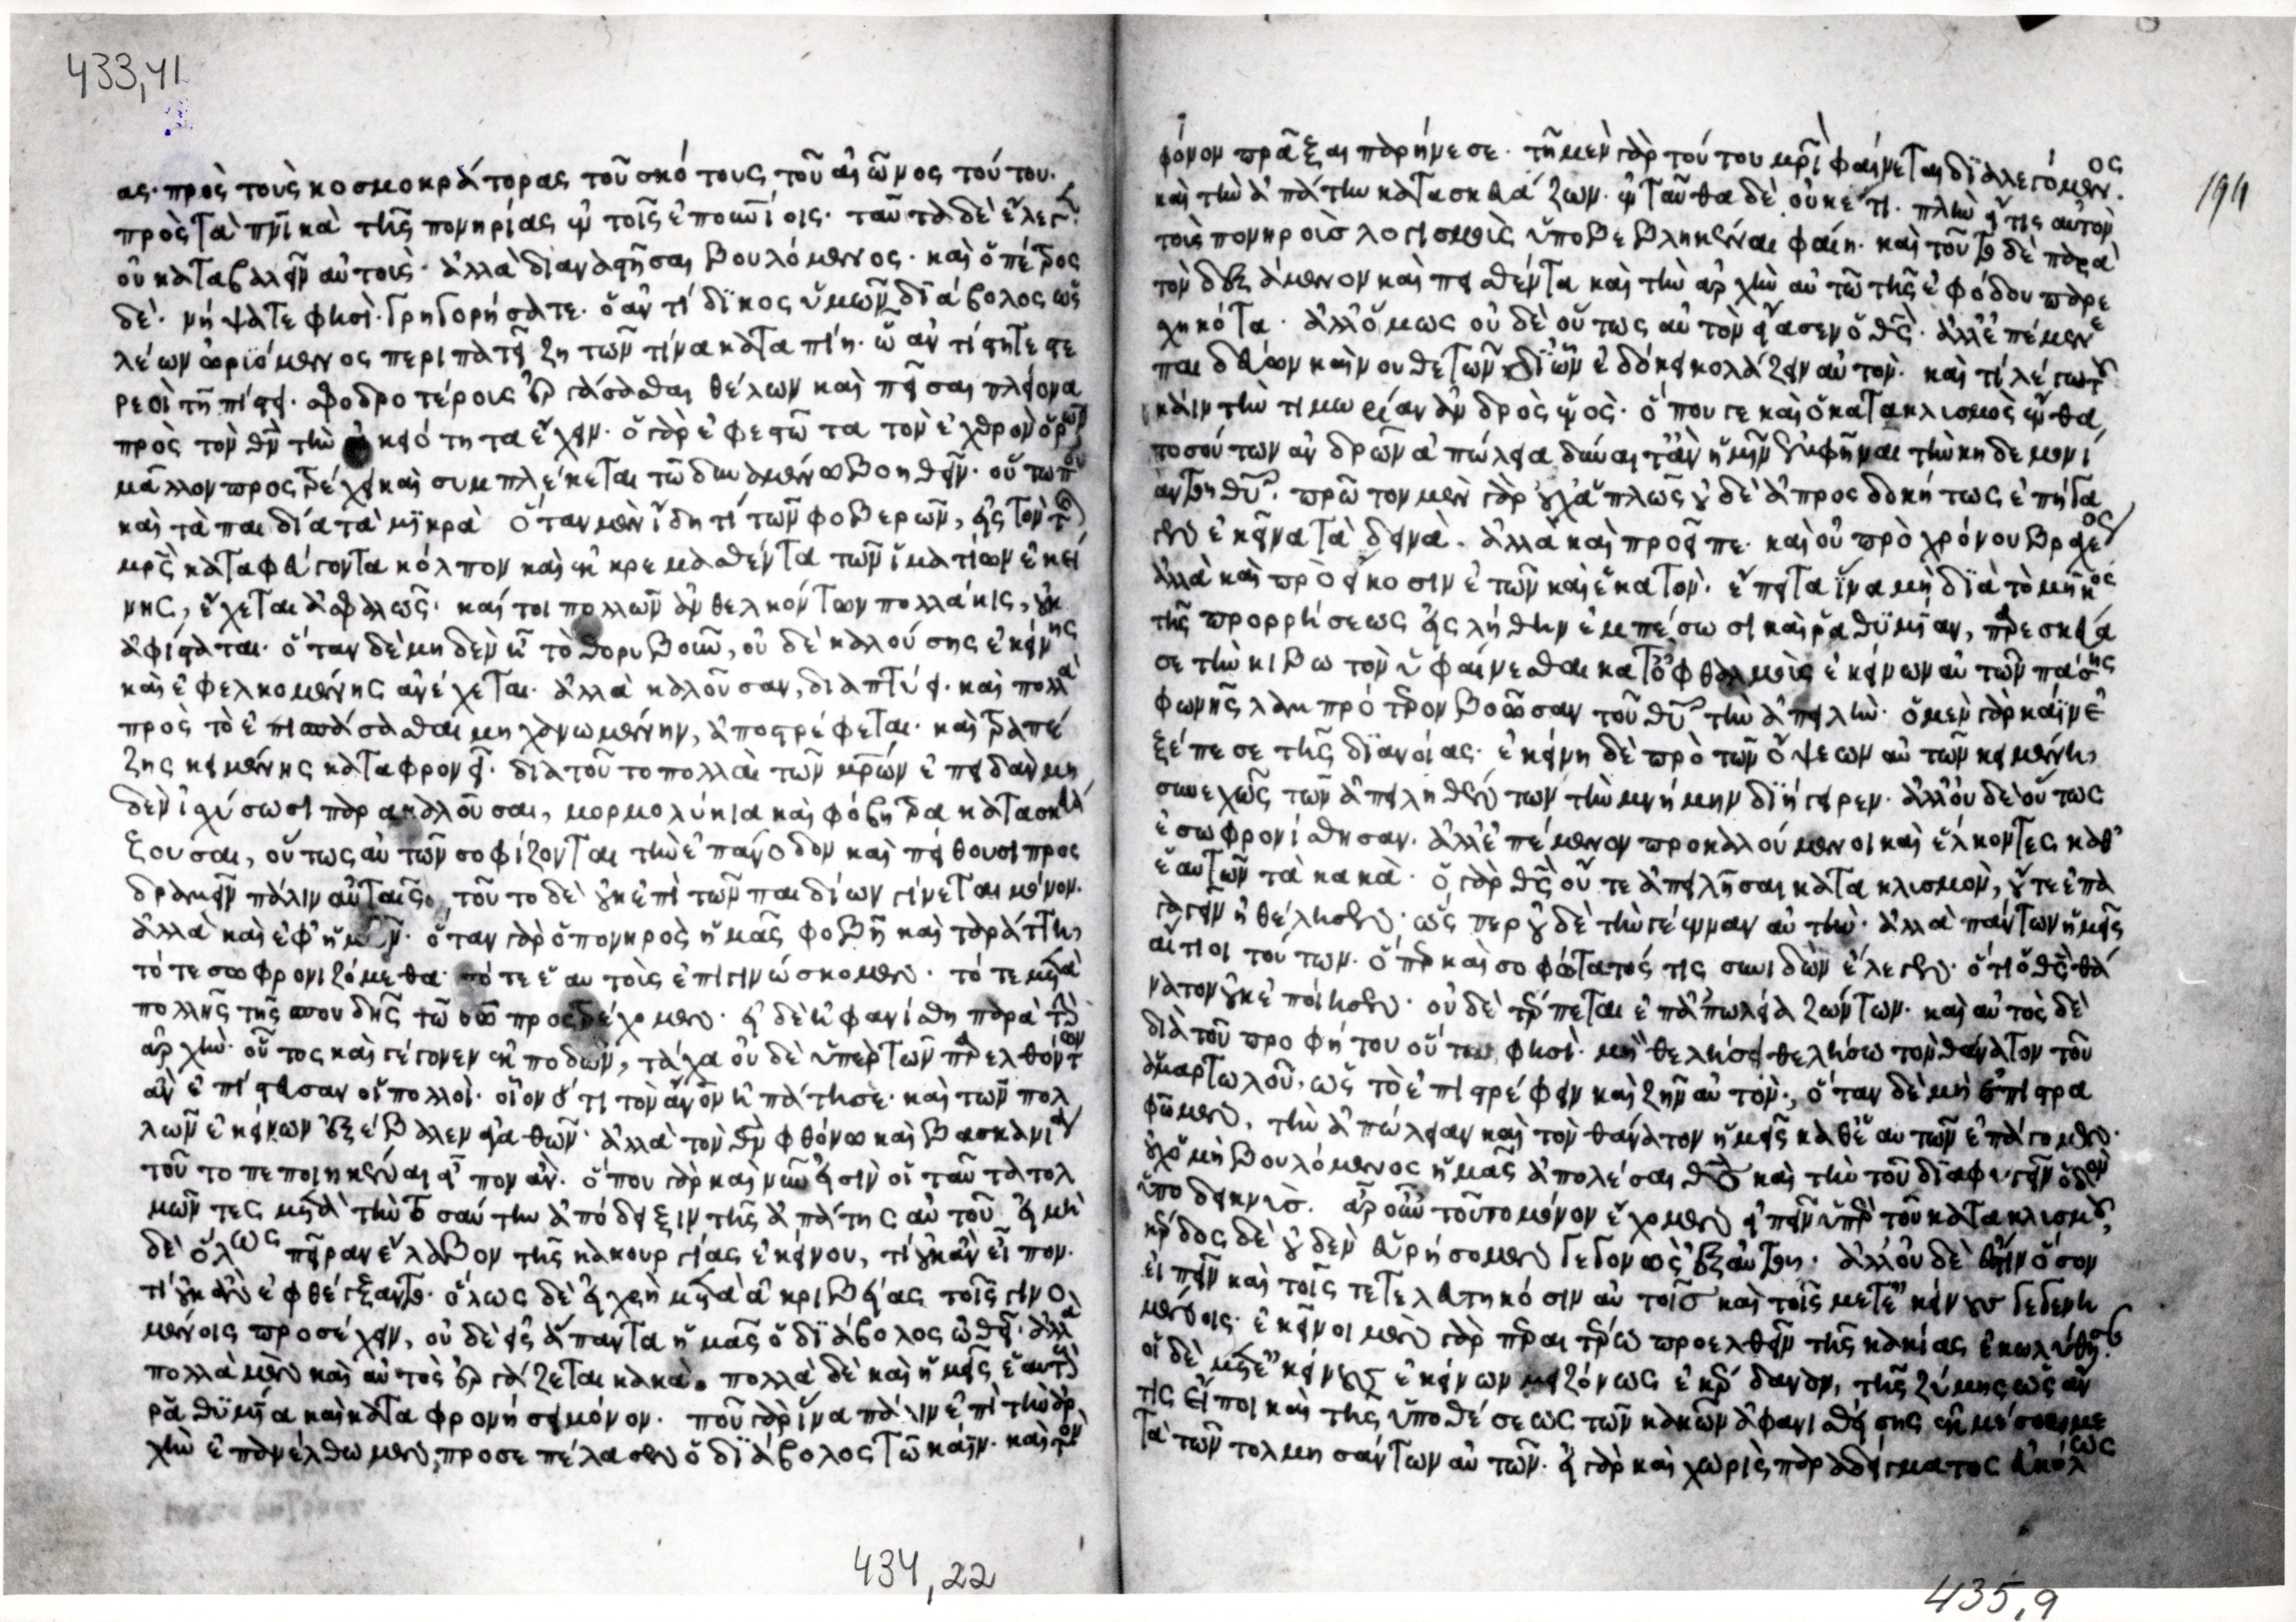 433,41
ας· πρὸς τοὺς κοσμοκράτορας τοῦ σκότους τοῦ αἰῶνος τούτου·
πρὸς τὰ πνικὰ τῆς πονηρίας ἐν τοῖς ἐπουνίοις· ταῦτα δὲ ἔλεγεν
οὐ καταβαλεῖν αὐτοὺς· ἀλλὰ διαναστῆσαι βουλόμενος· καὶ ὁ πέτρος
δὲ· νήψατε φησὶ· γρηγορήσατε· ὁ ἀντίδικος ὑμῶν διάβολος ὡς
λέων ὠρυόμενος περιπατεῖ ζητῶν τίνα καταπίῃ· ᾧ ἀντίστητε στε
ρεοὶ τῇ πίστει· σφοδροτέρους ἐργάσασθαι θέλων καὶ πεῖσαι πλείονα
πρὸς τὸν θν τὴν οἰκειότητα ἔχειν· ὁ γὰρ ἐφεστῶτα τὸν ἐχθρὸν ὁρῶν
μᾶλλον προστρέχει καὶ συμπλέκεται τῷ δυναμένῳ βοηθεῖν· οὕτω
καὶ τὰ παιδία τὰ μικρὰ ὅταν μὲν ἴδῃ τί τῶν φοβερῶν, εἰς τὸν τῆς
μρς καταφεύγοντα κόλπον καὶ ἐκκρεμασθέντα τῶν ἱματίων ἐκεί
νης, ἔχεται ἀσφαλῶς· καίτοι πολλῶν ἀνθελκόντων πολλάκις, οὐκ
ἀφίσταται· ὅταν δὲ μηδὲν ᾖ τὸ θορυβοῦν, οὐδὲ καλούσης ἐκείνης
καὶ ἐφελκομένης ἀνέχεται· ἀλλὰ καλοῦσαν, διαπτύει· καὶ πολλὰ
πρὸς τὸ ἐπισπάσασθαι μηχανωμένην, ἀποστρέφεται· καὶ τραπέ
ζης κειμένης καταφρονεῖ· διὰ τοῦτο πολλαὶ τῶν μρων ἐπειδὰν μη
δὲν ἰσχύσωσι παρακαλοῦσαι, μορμολύκια καὶ φόβητρα κατασκευά
ζουσαι, οὕτως αὐτῶν σοφίζονται τὴν ἐπάνοδον καὶ πείθουσι προς
δραμεῖν πάλιν αὐταῖς. τοῦτο δὲ οὐκ ἐπὶ τῶν παιδίων γίνεται μόνον·
ἀλλὰ καὶ ἐφ' ἡμῶν· ὅταν γὰρ ὁ πονηρὸς ἡμᾶς φοβῇ καὶ ταράττῃ,
τότε σωφρονιζόμεθα· τότε ἑαυτοὺς ἐπιγινώσκομεν· τότε μετὰ
πολλῆς τῆς σπουδῆς τῷ θω προστρέχομεν· εἰ δὲ ἠφανίσθη παρὰ τὴν
ἀρχὴν οὗτος καὶ γέγονεν ἐκποδών, τάχα οὐδὲ ὑπὲρ τῶν παρελθόντων
ἂν ἐπίστευσαν οἱ πολλοὶ· οἷον ὅτι τὸν ἄνον ἠπάτησε· καὶ τῶν πολ
λῶν ἐκείνων ἐξέβαλεν ἀγαθῶν· ἀλλὰ τὸν θν φθόνῳ καὶ βασκανίᾳ
τοῦτο πεποιηκέναι εἶπον ἄν· ὅπου γὰρ καὶ νῦν εἰσὶν οἱ ταῦτα τολ
μῶντες μετὰ τὴν τοσαύτην ἀπόδειξιν τῆς ἀπάτης αὐτοῦ· εἰ μὴ
δὲ ὅλως πεῖραν ἔλαβον τῆς κακουργίας ἐκείνου, τί οὐκ ἂν εἶπον·
τί οὐκ ἂν ἐφθέγξαντο· ὅλως δὲ εἰ χρὴ μετὰ ἀκριβείας τοῖς γινο
μένοις προσέχειν, οὐδὲ εἰς ἅπαντα ἡμᾶς ὁ διάβολος ὠθεῖ· ἀλλὰ
πολλὰ μὲν καὶ αὐτὸς ἐργάζεται κακὰ. πολλὰ δὲ καὶ ἡμεῖς ἑαυτοὺς
ῥαθυμίᾳ καὶ καταφρονήσει μόνον· ποῦ γὰρ ἵνα πάλιν ἐπὶ τὴν ἀρ
χὴν ἐπανέλθωμεν, προσεπέλασεν ὁ διάβολος τῷ κάϊν· καὶ τὸν
434,22
φόνον πρᾶξαι παρῄνεσε· τῇ μὲν γὰρ τούτου μρι φαίνεται διαλεγόμενος
καὶ τὴν ἀπάτην κατασκευάζων· ἐνταῦθα δὲ οὐκέτι· πλὴν εἴ τις αὐτὸν
τοὺς πονηροὺς λογισμοὺς ὑποβεβληκέναι φαίη· καὶ τοῦτο δὲ παρὰ
τὸν δεξάμενον καὶ πεισθέντα καὶ τὴν ἀρχὴν αὐτῷ τῆς ἐφόδου παρε
σχηκότα· ἀλλ' ὅμως οὐδὲ οὕτως αὐτὸν εἴασεν ὁ θς· ἀλλ' ἐπέμενε
παιδεύων καὶ νουθετῶν δι' ὧν ἐδόκει κολάζειν αὐτὸν· καὶ τί λέγω τοῦ
κάιν τὴν τιμωρίαν ἀνδρὸς ἑνὸς· ὅπου γε καὶ ὁ κατακλυσμὸς ἔνθα
τοσούτων ἀνδρῶν ἀπώλεια δύναιτ' ἂν ἡμῖν ἐκφῆναι τὴν κηδεμονί
αν τοῦ θυ· πρῶτον μὲν γὰρ οὐχ ἁπλῶς οὐδὲ ἀπροσδοκήτως ἐπῆγα
γεν ἐκεῖνα τὰ δεινὰ· ἀλλὰ καὶ προεῖπε· καὶ οὐ πρὸ χρόνου βραχέος
ἀλλὰ καὶ πρὸ εἴκοσιν ἐτῶν καὶ ἑκατὸν· ἔπειτα ἵνα μὴ διὰ τὸ μῆκος
τῆς προρρήσεως εἰς λήθην ἐμπέσωσι καὶ ῥαθυμίαν, παρεσκεύα
σε τὴν κιβωτὸν ὑφαίνεσθαι κατ' ὀφθαλμοὺς ἐκείνων αὐτῶν πάσης
φωνῆς λαμπρότερον βοῶσαν τοῦ θυ τὴν ἀπειλὴν· ὁ μὲν γὰρ κάϊν ἐ
ξέπεσε τῆς διανοίας· ἐκείνη δὲ πρὸ τῶν ὄψεων αὐτῶν κειμένη,
συνεχῶς τῶν ἀπειληθέντων τὴν μνήμην διήγειρεν· ἀλλ' οὐδὲ οὕτως
ἐσωφρονίσθησαν· ἀλλ' ἐπέμενον προκαλούμενοι καὶ ἕλκοντες καθ'
ἑαυτῶν τὰ κακὰ· ὁ γὰρ θς οὔτε ἀπειλῆσαι κατακλυσμὸν, οὔτε ἐπα
γαγεῖν ἠθέλησεν· ὥσπερ οὐδὲ τὴν γέενναν αὐτὴν· ἀλλὰ πάντων ἡμεῖς
αἴτιοι τούτων· ὅπερ καὶ σοφώτατός τις συνιδὼν ἔλεγεν· ὅτι ὁ θς θά
νατον οὐκ ἐποίησεν· οὐδὲ τέρπεται ἐπ' ἀπωλείᾳ ζώντων· καὶ αὐτὸς δὲ
διὰ τοῦ προφήτου οὕτω φησὶ· μὴ θελήσει θελήσω τὸν θάνατον τοῦ
ἁμαρτωλοῦ, ὡς τὸ ἐπιστρέφειν καὶ ζῆν αὐτὸν·, ὅταν δὲ μὴ ἐπιστρα
φῶμεν, τὴν ἀπώλειαν καὶ τὸν θάνατον ἡμεῖς καθ' ἑαυτῶν ἐπάγομεν·
οὐχ ὁ μὴ βουλόμενος ἡμᾶς ἀπολέσαι θς καὶ τὴν τοῦ διαφυγεῖν ὁδὸν
ὑποδεικνύς· ἆρ' οὖν τοῦτο μόνον ἔχομεν εἰπεῖν ὑπὲρ τοῦ κατακλυσμοῦ,
κέρδος δὲ οὐδὲν εὑρήσομεν γεγονὸς ἐξ αὐτοῦ· ἀλλ' οὐδὲ ἔστιν ὅσον
εἰπεῖν καὶ τοῖς τετελευτηκόσιν αὐτοῖς καὶ τοῖς μετ' ἐκείνους γεγενη
μένοις· ἐκεῖνοι μὲν γὰρ περαιτέρω προελθεῖν τῆς κακίας ἐκωλύθησαν
οἱ δὲ μετ' ἐκείνους ἐκείνων μειζόνως ἐκέρδαναν, τῆς ζύμης ὡς ἄν
τις εἴποι καὶ τῆς ὑποθέσεως τῶν κακῶν ἀφανισθείσης ἐκ μέσου με
τὰ τῶν τολμησάντων αὐτῶν· εἰ γὰρ καὶ χωρὶς παραδείγματος εὐκόλως
194
435,9